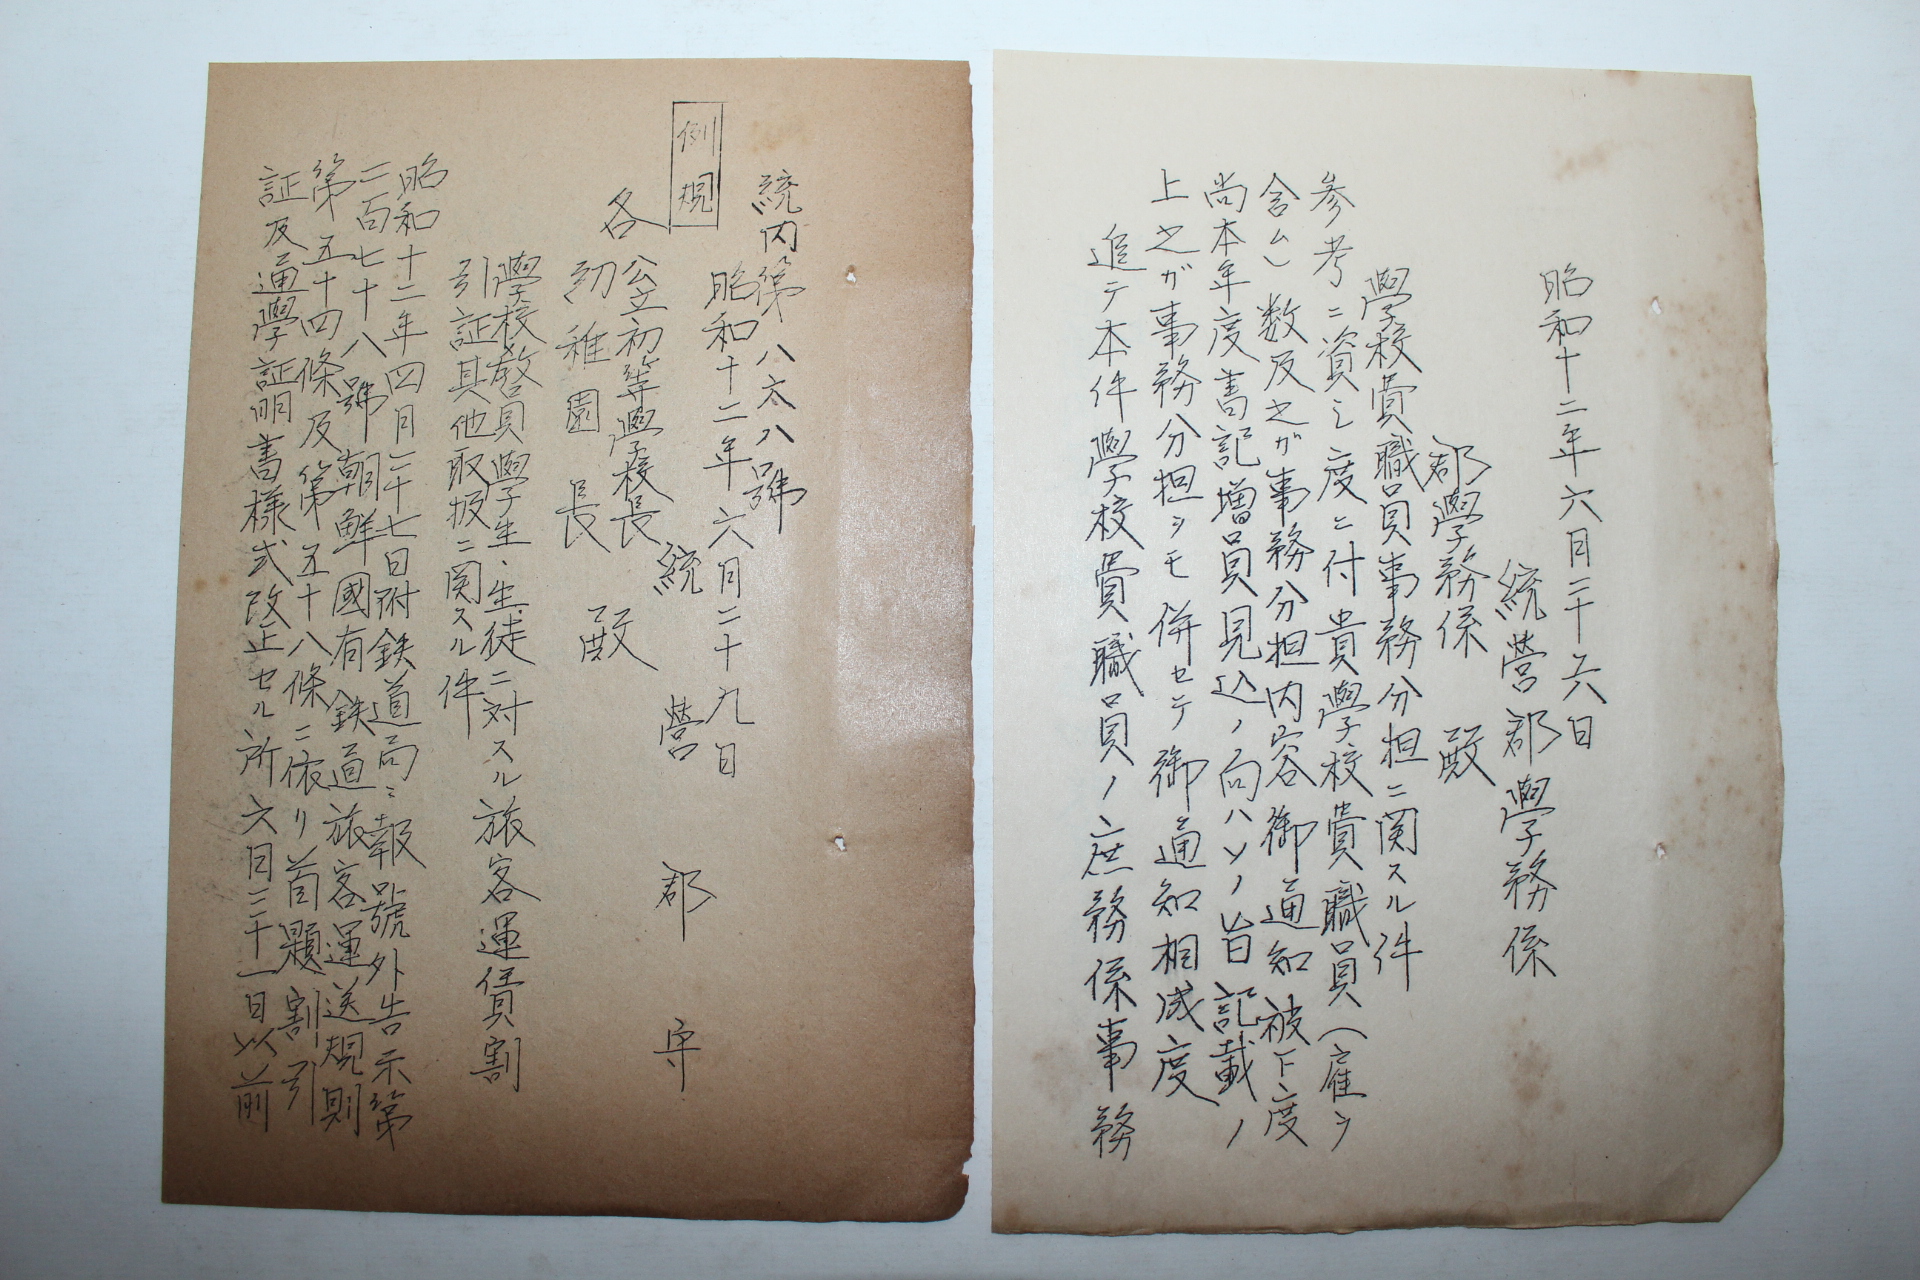 昭和十二年六月二十六日
統營郡學務係
郡學務係 殿
學校費職員事務分担ニ関スル件
参考ニ資シ度ニ付貴學校費職員(雇ヲ
含ム)数及之ガ事務分担内容御通知被下度
尚本年度書記増員見込ノ向ハソノ旨記載ノ
上之ガ事務分担ヲモ併セテ御通知相成度
追テ本件學校費職員ノ庶務係事務
統内第八六八號
昭和十二年六月二十九日
例規
統營郡守
各公立初等學校長
幼稚園長
殿
學校敎員學生、生徒ニ対スル旅客運賃割
引証其他取扱ニ関スル件
昭和十二年四月二十七日附鉄道局ニ報號外告示第
二百七十八號朝鮮國有鉄道旅客運送規則
第五十四條及第五十八條ニ依リ首題割引
証及通學証明書様式改正セル所六月三十一日以前